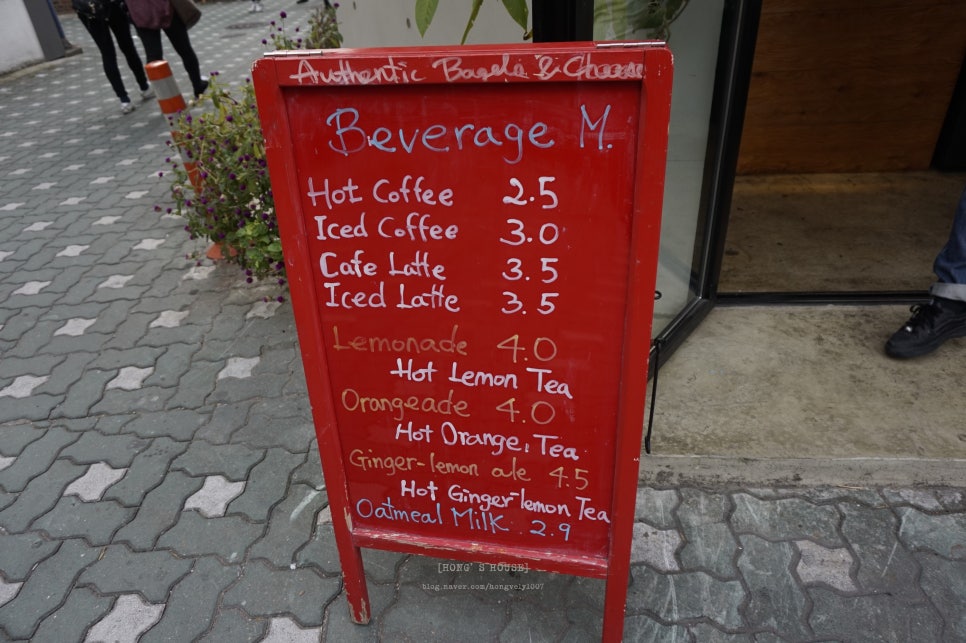 Authentic Bagels & Cheese
Beverage M.
Hot Coffee 2.5
Iced Coffee 3.0
Cafe Latte 3.5
Iced Latte 3.5
Lemonade 4.0
Hot Lemon Tea
Orangeade 4.0
Hot Orange, Tea
Ginger-lemon ale 4.5
Hot Ginger-lemon Tea
Oatmeal Milk 2.9
[HONG' S HOUSE]
blog.naver.com/hongvely1007